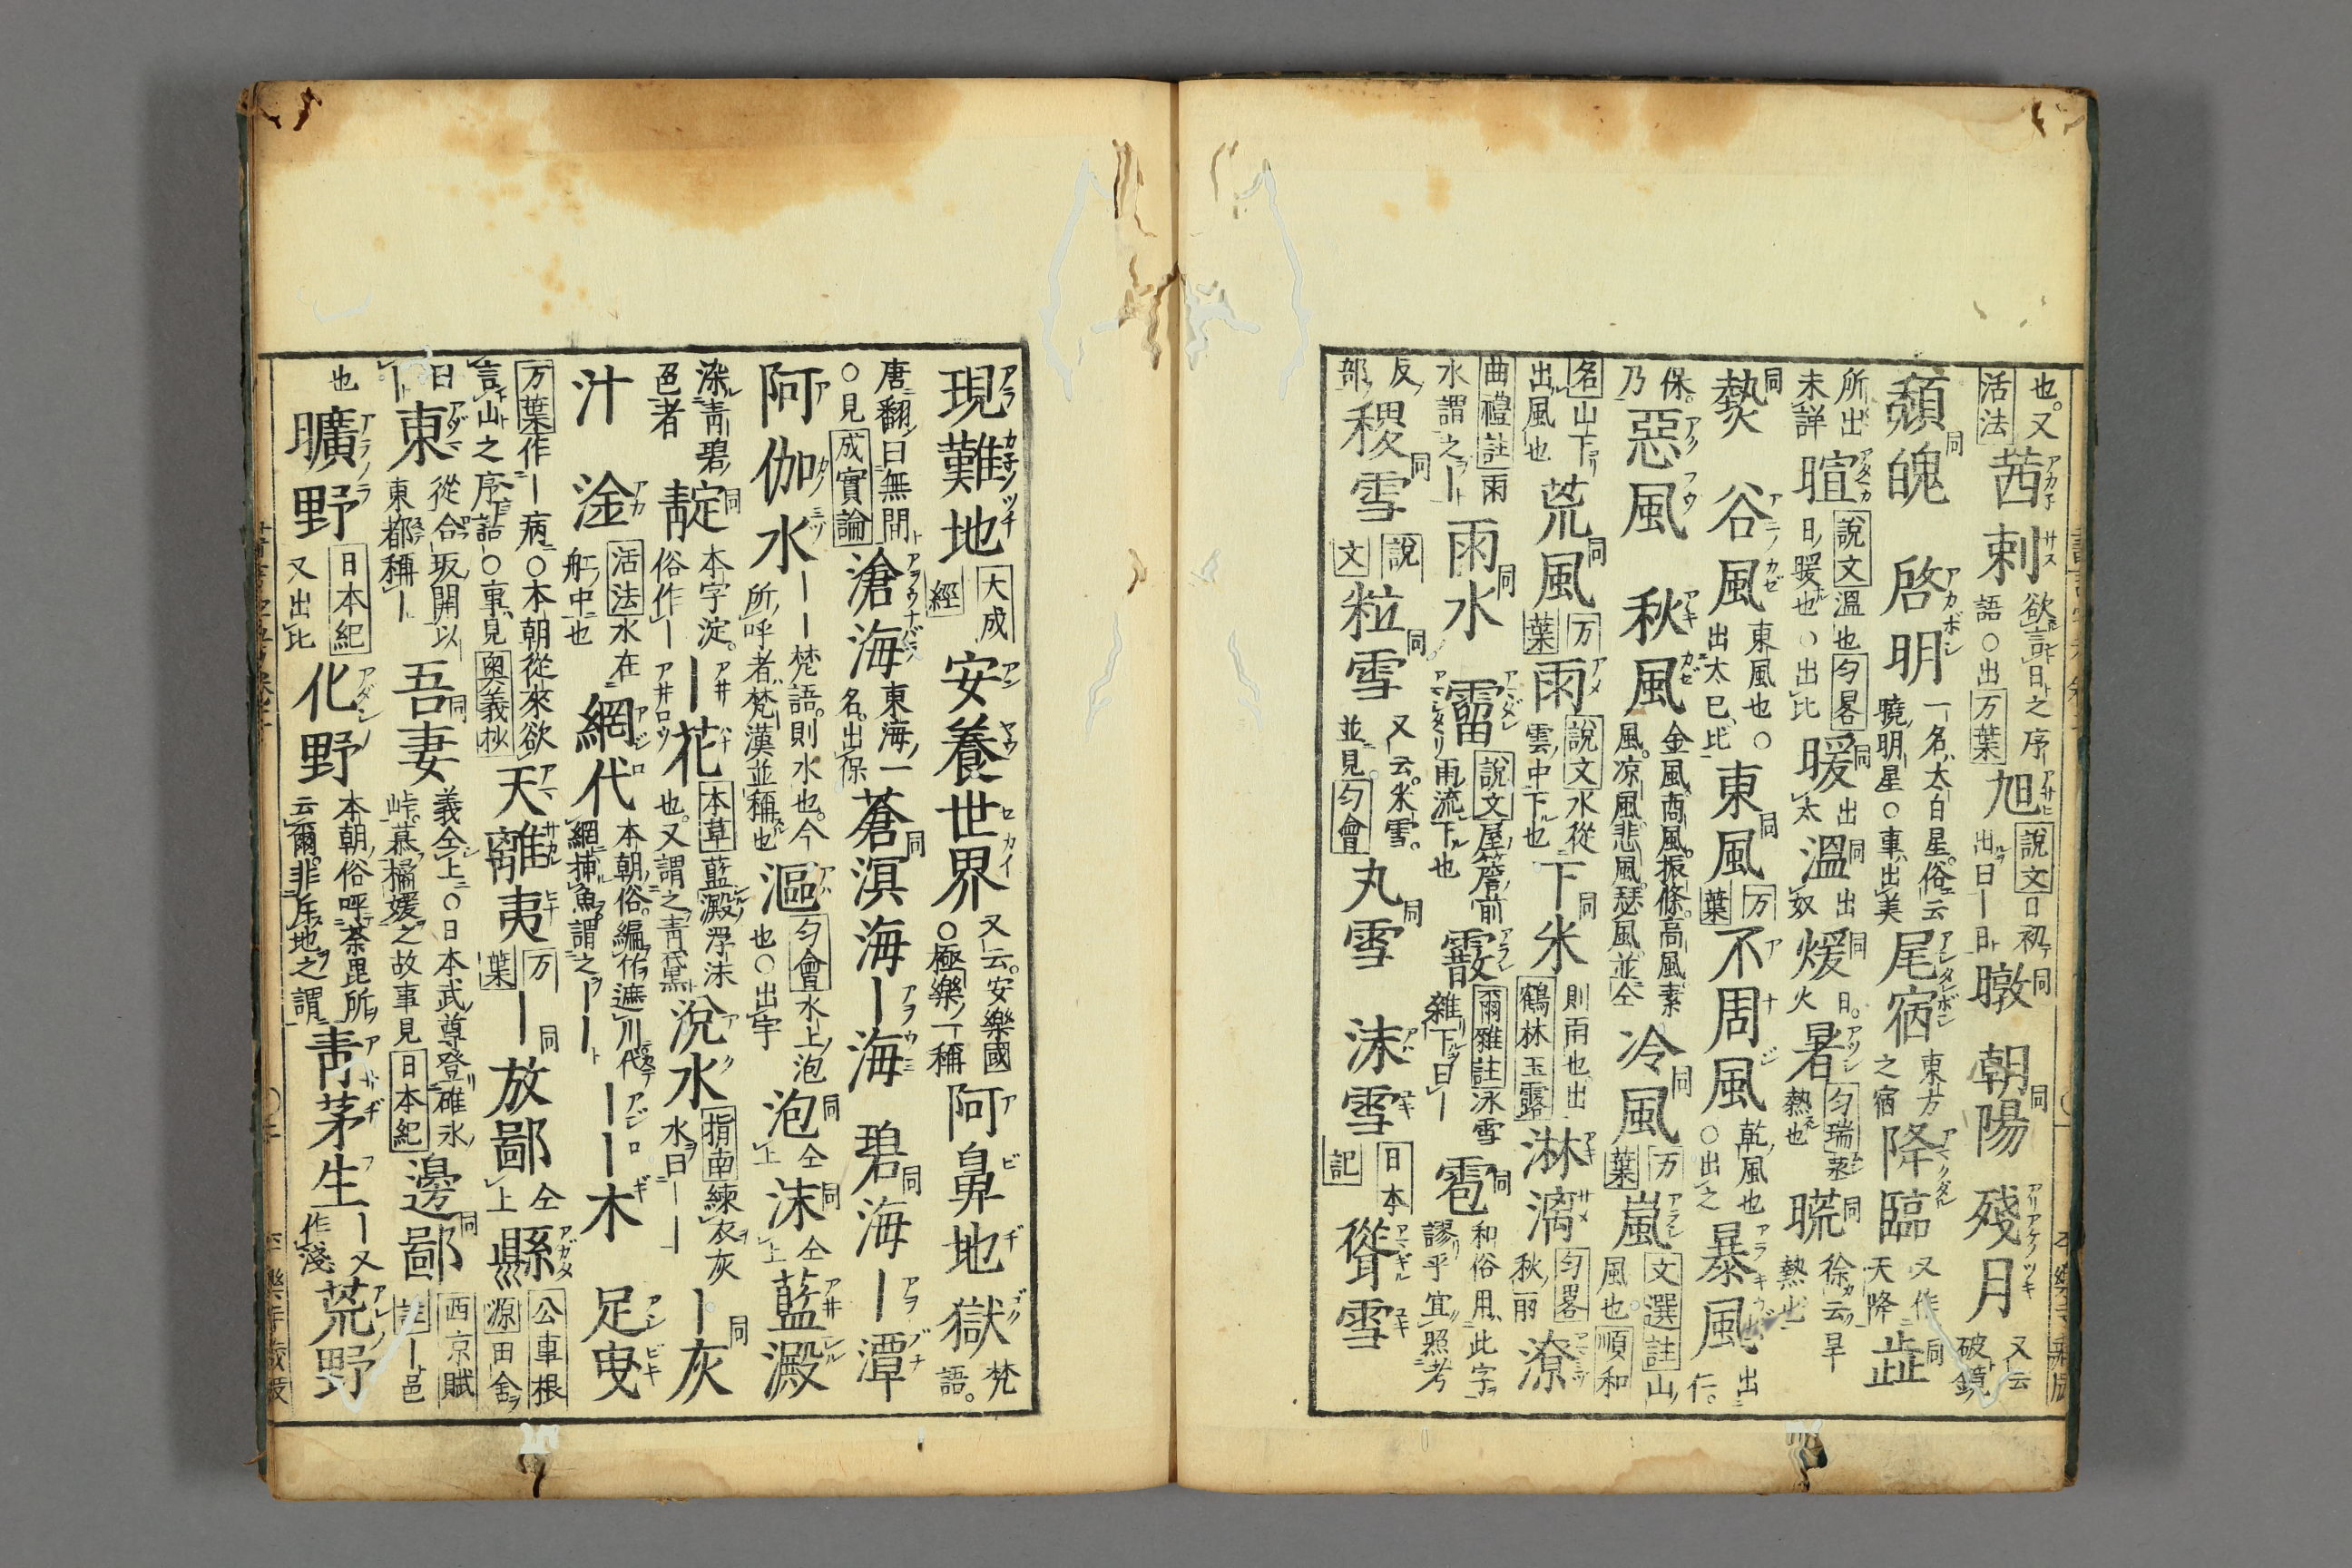 也。又活法茜刺欲言日之序語○出万葉旭說文日初出曰ー日暾朝陽殘月又云破鏡
頹魄啓明一名太白星。俗云曉明星○車出美尾宿東方之宿降臨又作天降
所出未詳暄說文溫也勻畧日暖也○出比暖出太溫出奴煖日。火暑勻瑞蒸熱也熱出
谷風東風也。○出太巳比東風万葉不周風乾風也○出之暴風出仁。
保。乃惡風秋風金風。商風。振條。高風。素風。凉風。悲風。瑟風。並仝冷風万葉嵐文選註山風也順和
名山下出風也荒風万葉雨說文水從雲中下也下氺則雨也出鶴林玉露淋漓勻畧秋雨潦
曲禮註雨水謂之ー雨水霤說文屋簷前雨流下也霰爾雅註氷雪雜下曰ー雹和俗用此字謬乎宜照考
反部稷雪說文粒雪又云米雪。並見勻會丸雪沫雪日本記聳雪
現難地大成經安養世界又云。安樂國○極樂一稱阿鼻地獄梵語。
唐翻曰無間○見成實論滄海東海一名。出保蒼溟海ー海碧海ー潭
阿伽水ーー梵語。則水也。今所呼者梵漢並稱也漚勻會水上泡也○出宇泡仝上沫仝上藍澱
染青碧色者靛本字淀。俗作ーー花本草藍澱浮沫也。又謂之青黛涗水指南練衣灰水曰ーーー灰
汁淦活法水在舩中也網代本朝俗。編作遮川代網捕魚謂之ーーーー木足曳
万葉作ー病○本朝從來欲言山之序詰ー○事見奥義抄天離夷万葉ー放鄙仝上縣公車根源田舍
曰ー東從合坂関以東都稱ー吾妻義仝上○日本武尊登碓氷峠。慕橘媛之故事見日本紀邊鄙西京賦註ー邑
也曠野日本紀又出比化野本朝俗呼荼毘所云爾。非斥地之謂青茅生ー又作淺荒野